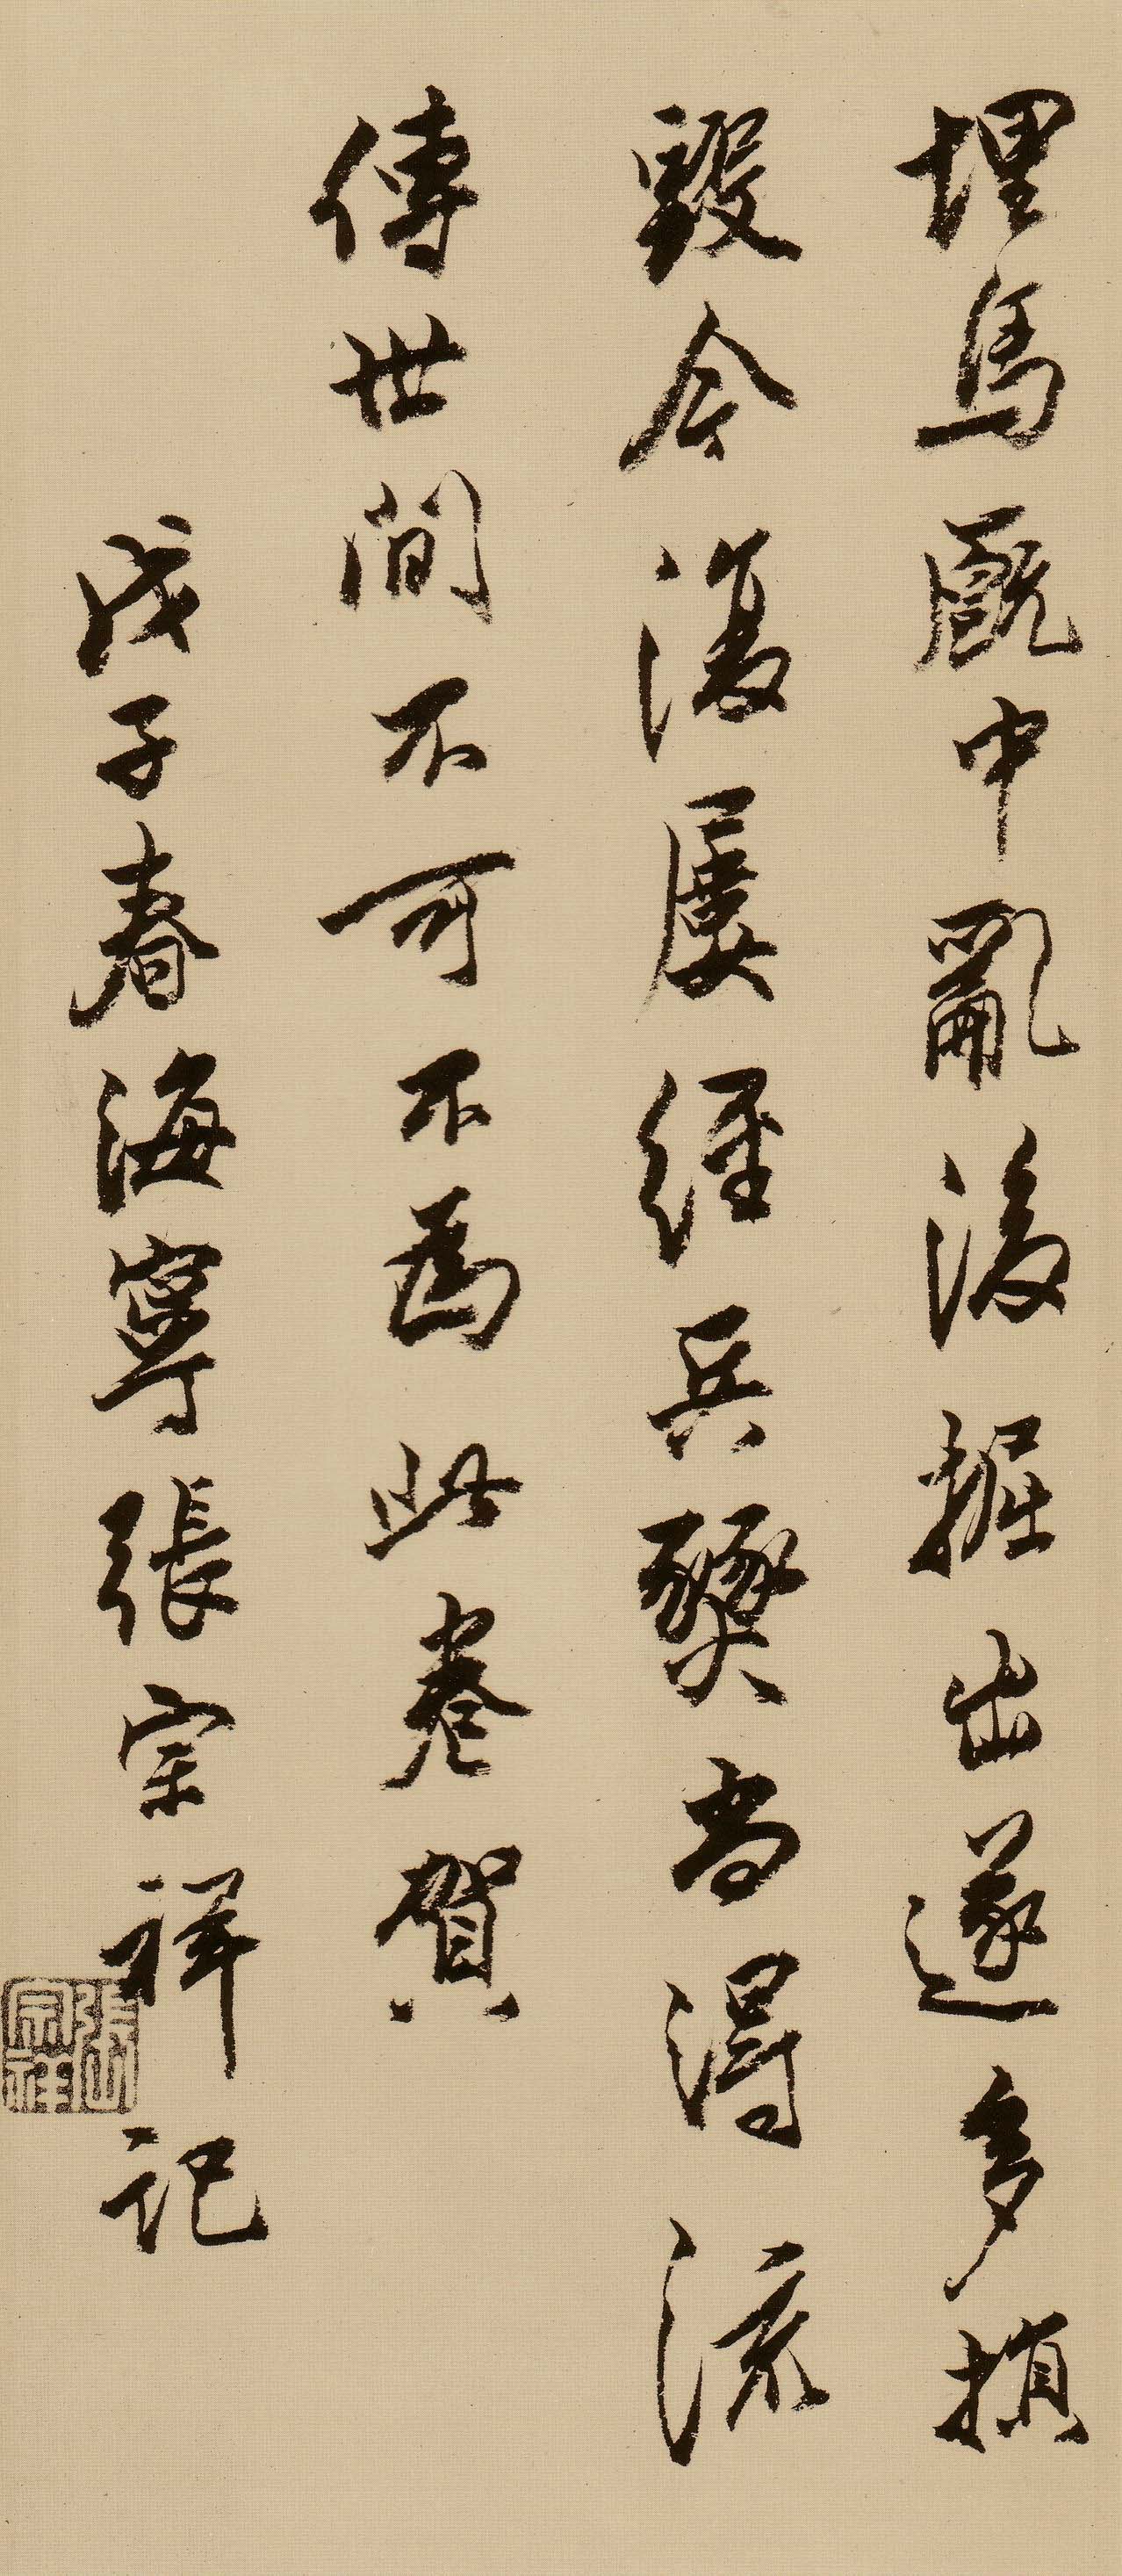 埋馬厩中亂後掘出遂多損
毀今復屢經兵燹尚得流
傳世間不可不為此卷賀
戊子春海寧張宗祥記
張宗祥